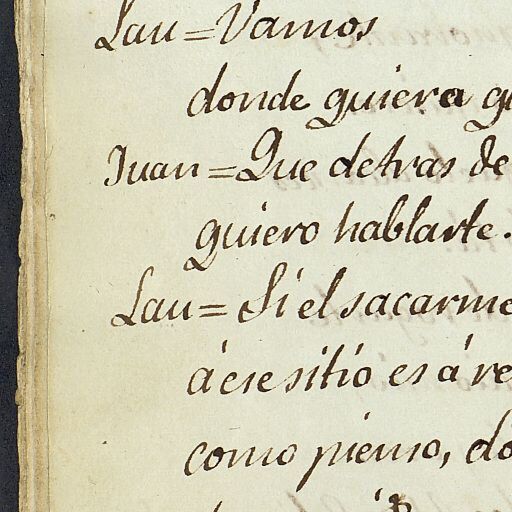 Lau = Vamos
donde quiera q
Juan = Que detras de
quiero hablarte.
Lau = Si el sacarme
á ese sitio es á re
como pienso, do